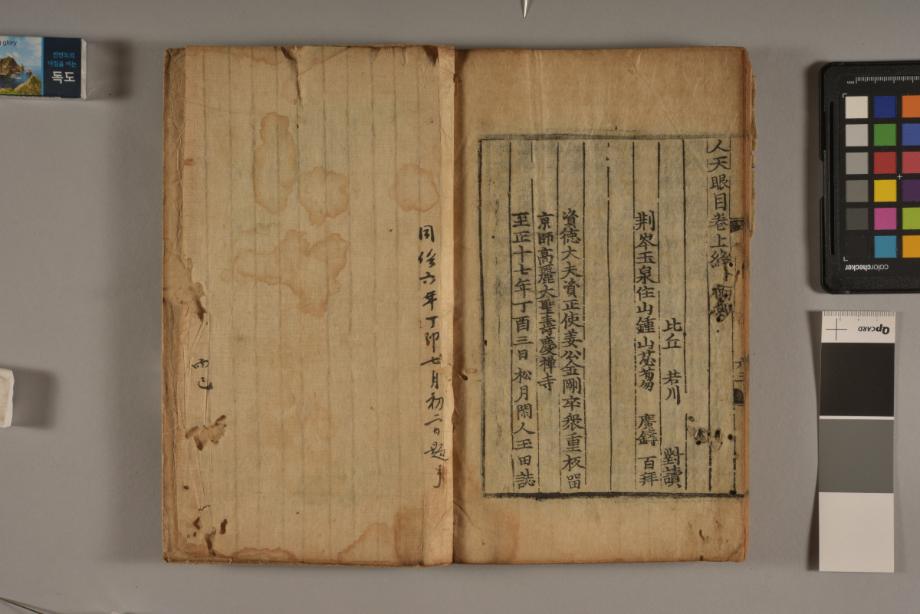 人天眼目卷上終
比丘 若川 對讀
荆岑玉泉住山鍾山苾蒭 廣鑄 百拜
資德大夫資正使姜公金剛卒衆重板留
京師高麗大聖壽慶禪寺
至正十七年丁酉三日 松月閑人玉田誌
同治六年丁卯七月初二日題
독도